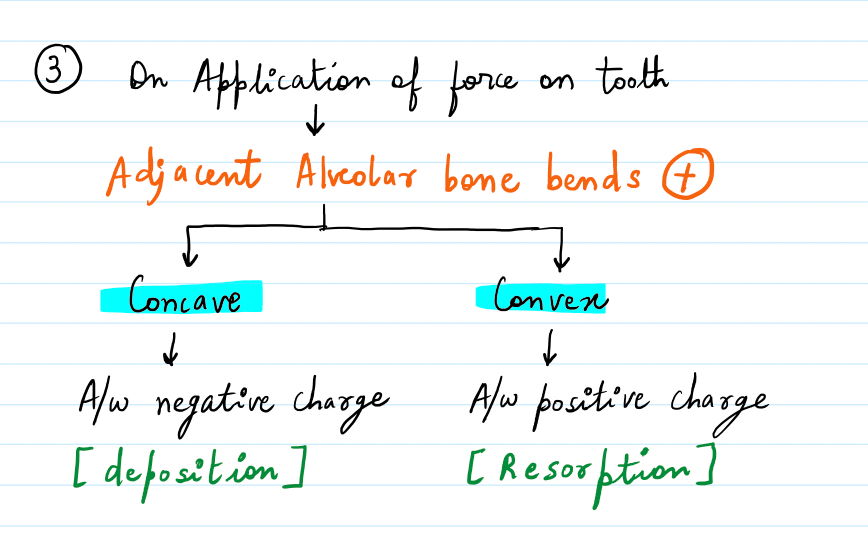 ③ On Application of force on tooth
↓
Adjacent Alveolar bone bends ⊕
Concave Convex
↓ ↓
A/w negative charge A/w positive charge
[deposition] [Resorption]